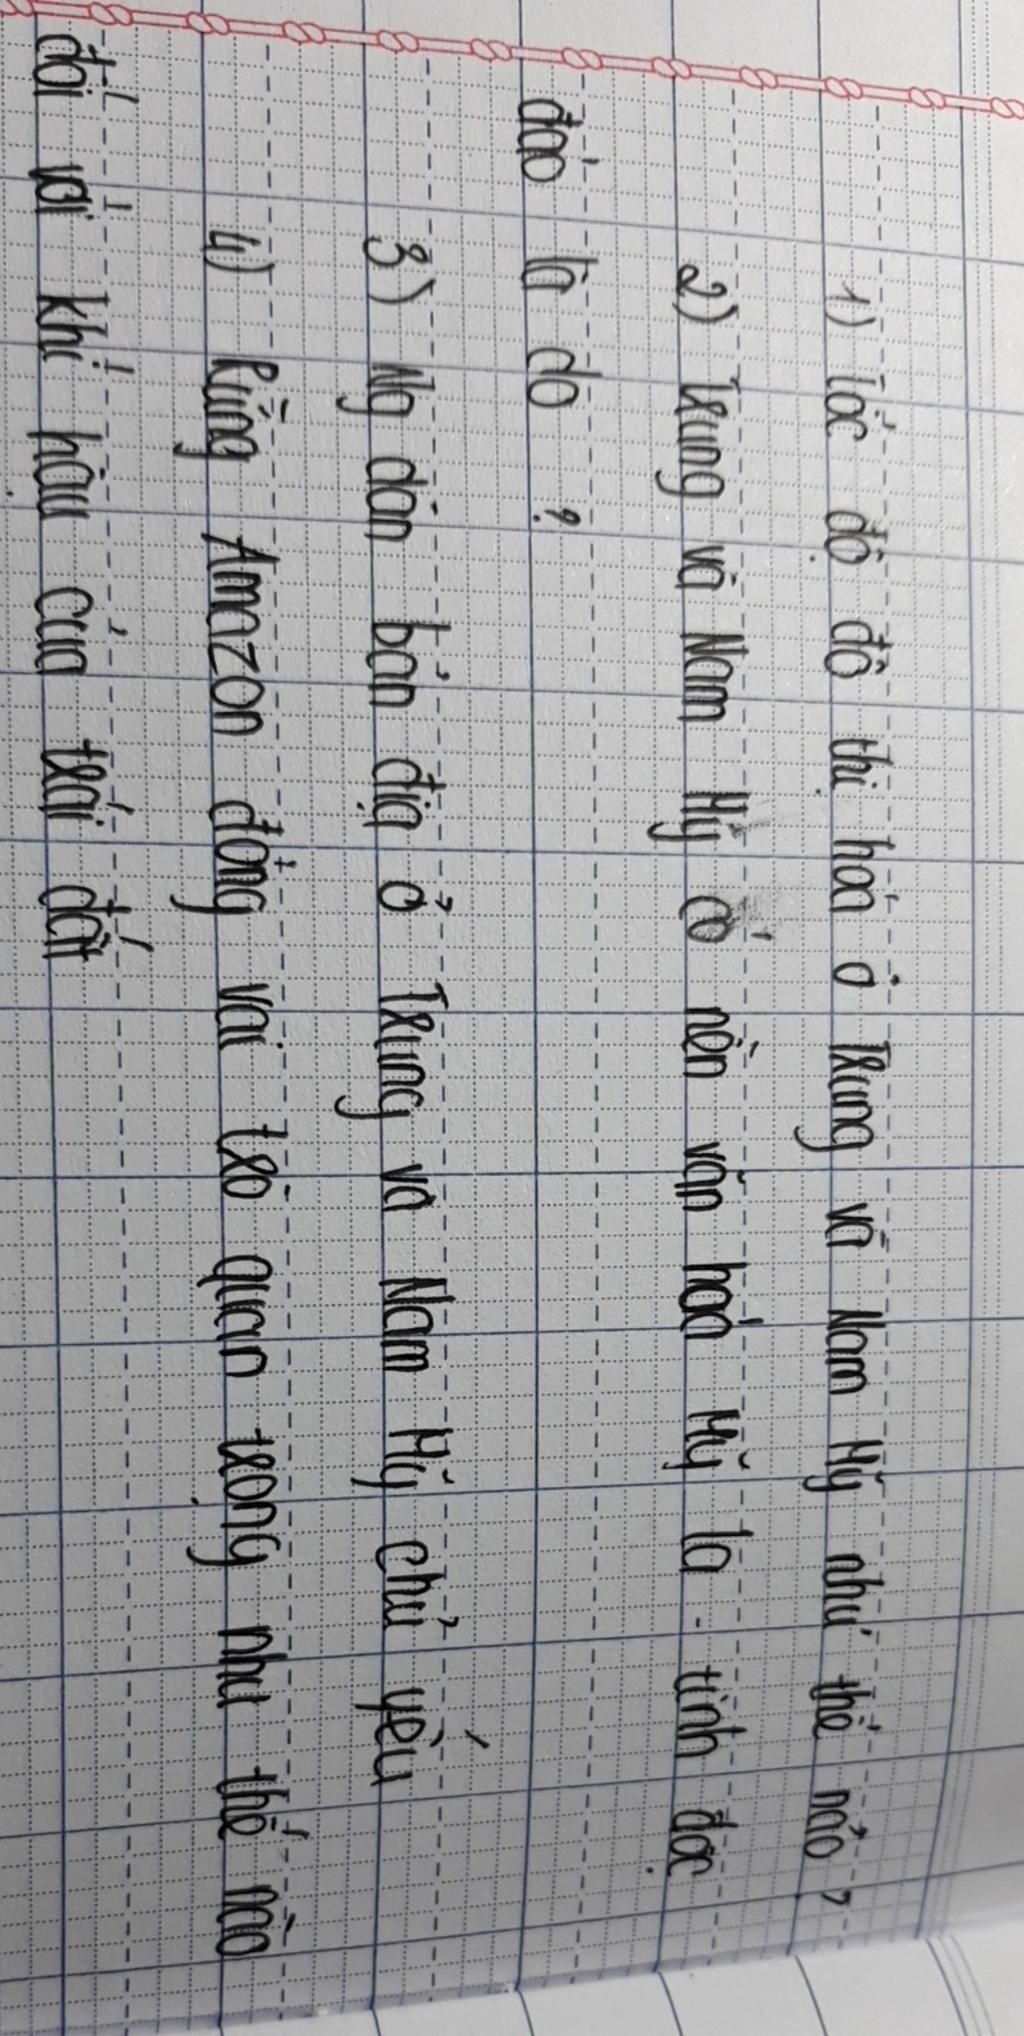 1) Tốc độ đô thị hoá ở Trung và Nam Mỹ như thế nào?
2) Trung và Nam Mỹ có nền văn hoá Mỹ la-tinh độc
đáo là do ?
3) Ng dân bản địa ở Trung và Nam Mỹ chủ yếu
4) Rừng Amazon đóng vai trò quan trọng như thế nào
đối với khí hậu của trái đất